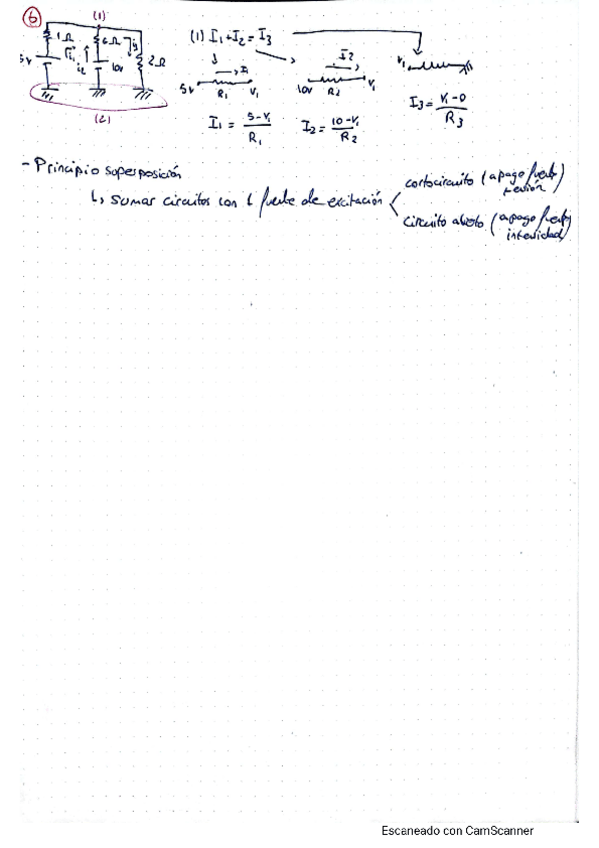 6
(1)
1Ω
6Ω
2Ω
5v
i1
i2
i3
10v
(2)
(1) I1+I2=I3
I1
5v R1 V1
I2
10v R2 V1
V1
I1 = 5-V1 / R1
I2 = 10-V1 / R2
I3 = V1-0 / R3
- Principio superposición
↳ Sumar circuitos con 1 fuente de excitación
cortocircuito (apago fuente tensión)
circuito abierto (apago fuente intensidad)
Escaneado con CamScanner